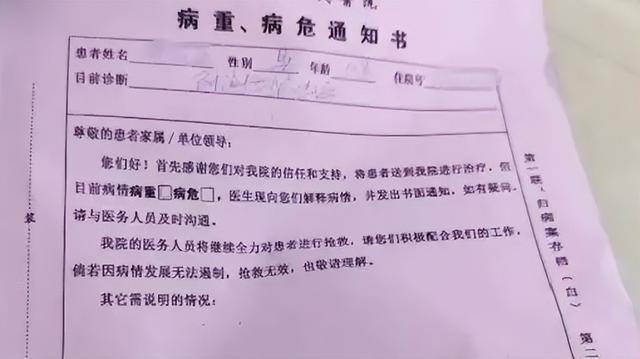 病重、病危通知书
患者姓名 性别 男 年龄 住院号
目前诊断
尊敬的患者家属/单位领导:
您们好!首先感谢您们对我院的信任和支持,将患者送到我院进行治疗,但
目前病情病重□病危□,医生现向您们解释病情,并发出书面通知,如有疑问,
请与医务人员及时沟通。
我院的医务人员将继续全力对患者进行抢救,请您们积极配合我们的工作,
倘若因病情发展无法遏制,抢救无效,也敬请理解。
其它需说明的情况:
装
第一联:归病案存档(白)
第二